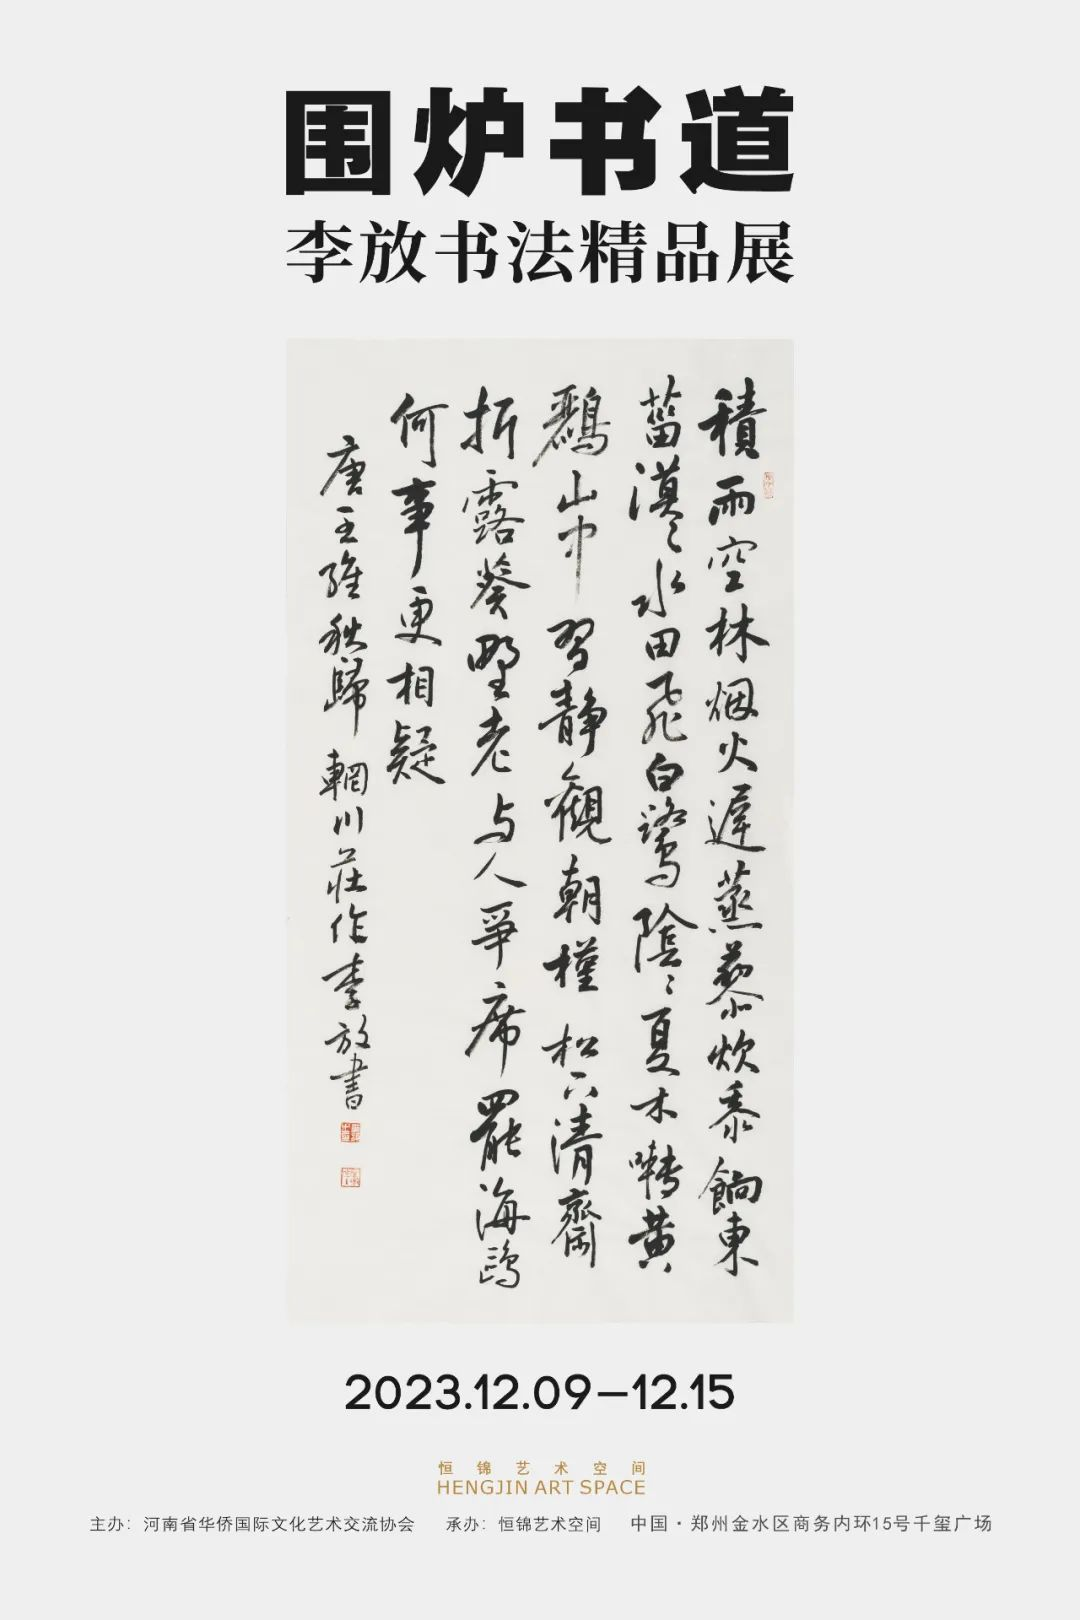 围炉书道
李放书法精品展
積雨空林烟火遲蒸藜炊黍餉東
菑漠〻水田飛白鷺陰〻夏木囀黄
鸝山中習靜觀朝槿松下清齋
折露葵野老与人爭席罷海鷗
何事更相疑
唐王維秋歸輞川莊作李放書
2023.12.09—12.15
恒锦艺术空间
HENGJIN ART SPACE
主办：河南省华侨国际文化艺术交流协会 承办：恒锦艺术空间 中国·郑州金水区商务内环15号千玺广场